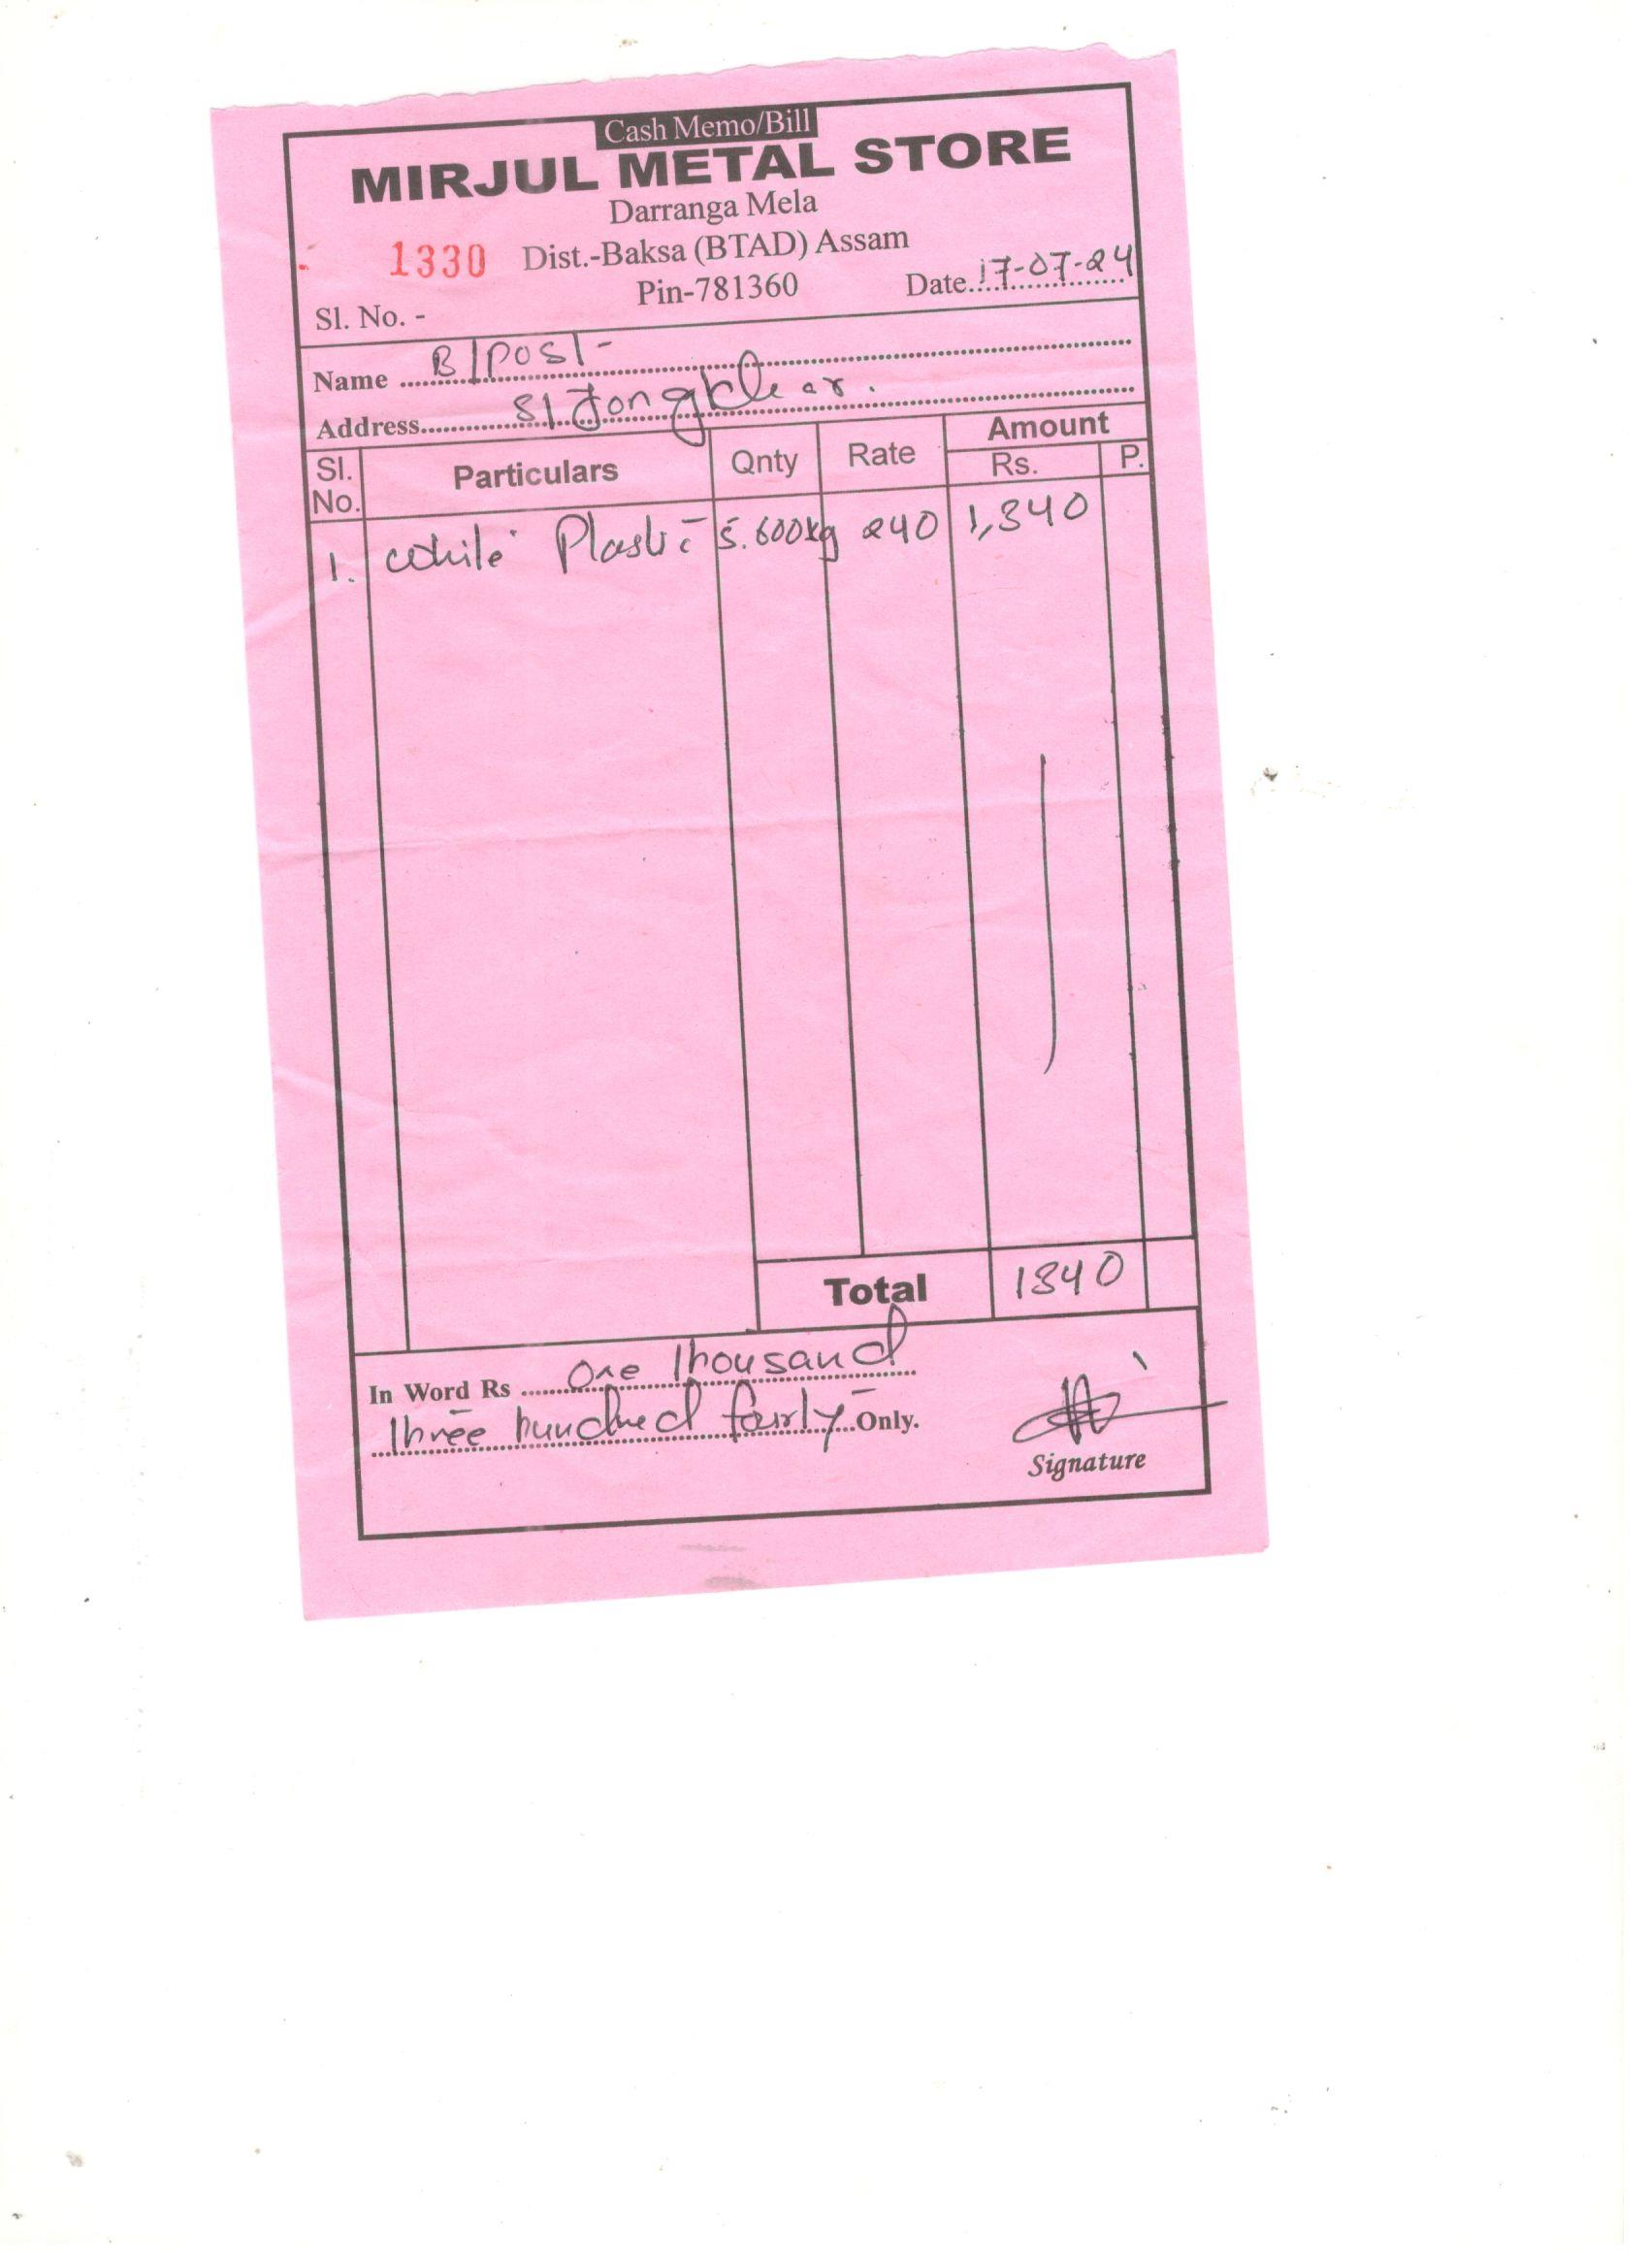 Cash Memo/Bill
MIRJUL METAL STORE
Darranga Mela
1330 Dist.-Baksa (BTAD) Assam
Sl. No. - Pin-781360 Date 17-07-24
Name B/Post-
Address S/Jongkhar.
Sl. No. Particulars Qnty Rate Amount
Rs. P.
1. White Plastic 5.600kg 240 1,340
Total 1340
In Word Rs One thousand
three hundred fourty Only.
Signature